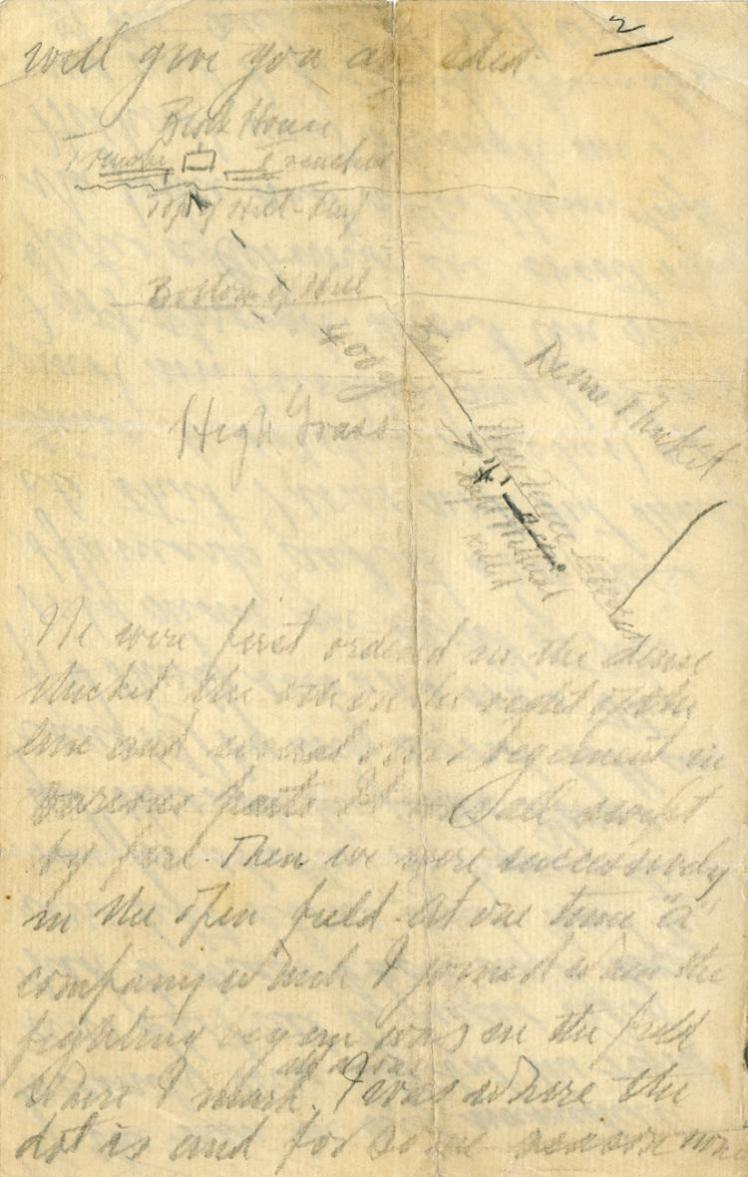 2
will give you an idea
Block House
Trenches Trenches
Top of Hill
Bottom of Hill
400 y
Dense Thicket
High Grass
killed
We were first ordered in the dense
thicket the on the right of the
line and several of our regiment in
various parts It was all swept
by fire. Then we were successively
in the open field. At one time "A"
company which I joined when the
fighting began was in the field
where I mark. I was where the
dot is and for some reason